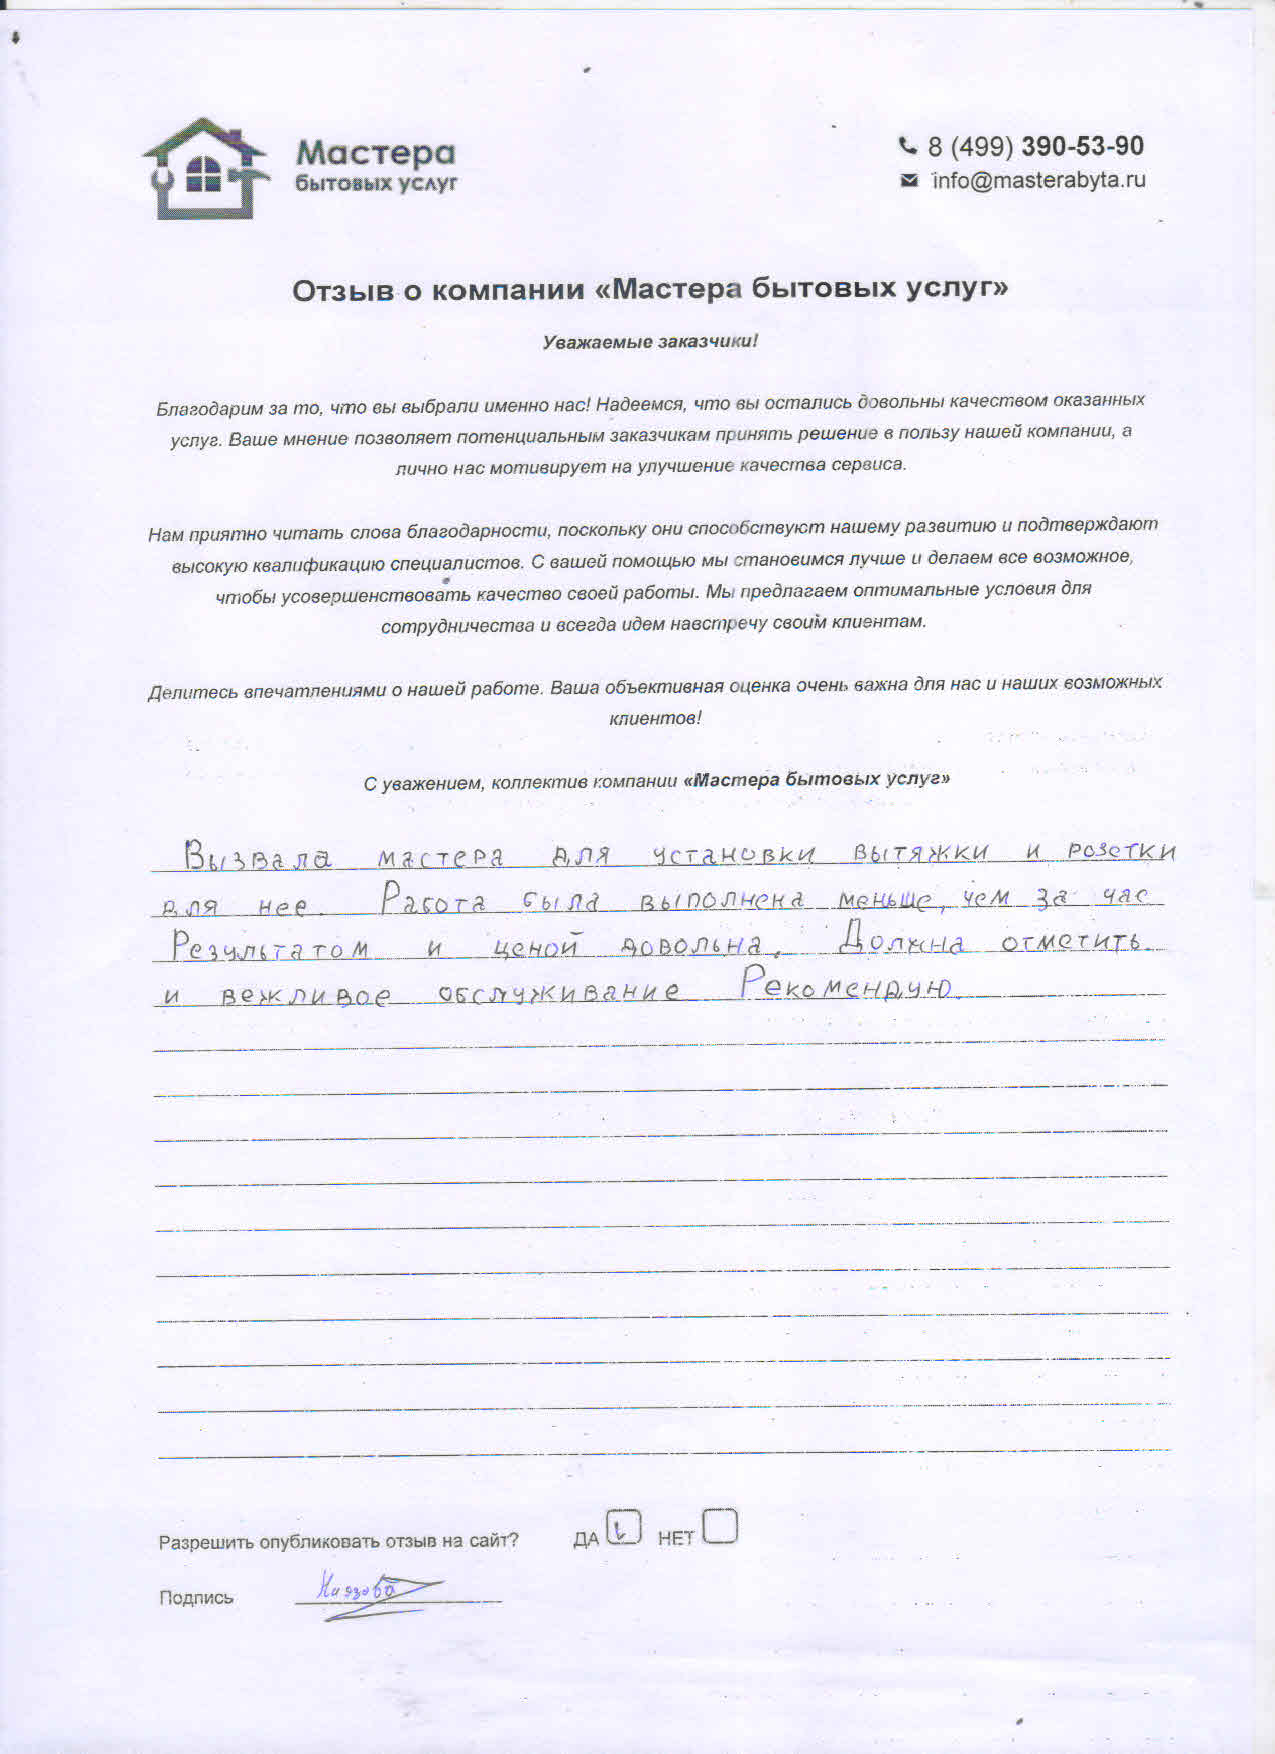 Мастера
бытовых услуг
8 (499) 390-53-90
info@masterabyta.ru
Отзыв о компании «Мастера бытовых услуг»
Уважаемые заказчики!
Благодарим за то, что вы выбрали именно нас! Надеемся, что вы остались довольны качеством оказанных
услуг. Ваше мнение позволяет потенциальным заказчикам принять решение в пользу нашей компании, а
лично нас мотивирует на улучшение качества сервиса.
Нам приятно читать слова благодарности, поскольку они способствуют нашему развитию и подтверждают
высокую квалификацию специалистов. С вашей помощью мы становимся лучше и делаем все возможное,
чтобы усовершенствовать качество своей работы. Мы предлагаем оптимальные условия для
сотрудничества и всегда идем навстречу своим клиентам.
Делитесь впечатлениями о нашей работе. Ваша объективная оценка очень важна для нас и наших возможных
клиентов!
С уважением, коллектив компании «Мастера бытовых услуг»
Вызвала мастера для установки вытяжки и розетки
для нее. Работа была выполнена меньше, чем за час
Результатом и ценой довольна. Должна отметить
и вежливое обслуживание Рекомендую.
Разрешить опубликовать отзыв на сайт? ДА НЕТ
Подпись